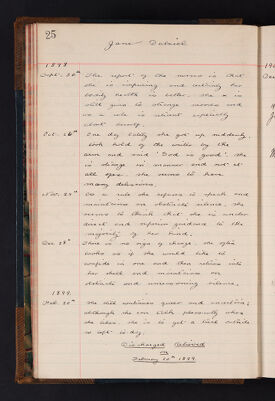 25
Jane Dalziel
1898
Sept. 30th The report of the nurses is that
she is improving and certainly her
bodily health is better. She is
still given to strange moods and
as a rule is silent especially
about herself.
Oct. 26th One day lately she got up suddenly
took hold of the writer by the
arm and said "God is good". She
is strange in manner and not at
all open. She seems to have
many delusions.
Nov. 25th As a rule she refuses to speak and
maintains an obstinate silence. She
seems to think that she is under
direct and superior guidance to the
majority of her kind.
Dec. 28th There is no sign of change. She often
looks as if she would like to
confide in one and then retires into
her shell and maintains an
obstinate and unreasoning silence.
1899.
Feb. 20th She still continues queer and secretive;
although she can talk pleasantly when
she likes. She is to get a trial outside
so left to-day.
Discharged Relieved
on
February 20th 1899.